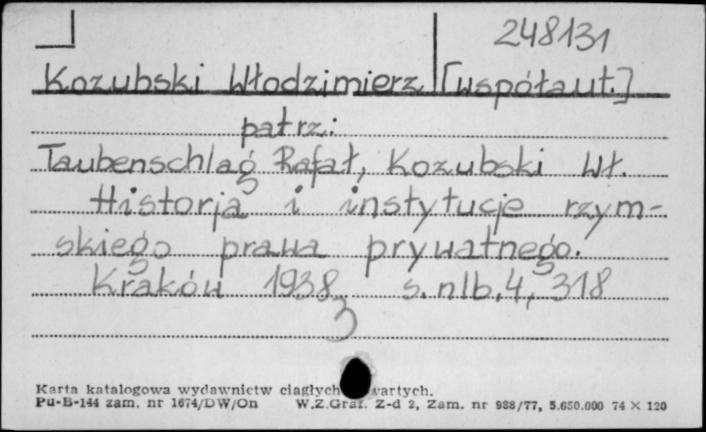 248131
Kozubski Włodzimierz [współaut.]
patrz:
Taubenschlag Rafał, Kozubski Wł.
Historja i instytucje rzym-
skiego prawa prywatnego.
Kraków 1938 s.nlb.4, 318
3
Karta katalogowa wydawnictw ciągłych
Pu-B-144 zam. nr 1674/DW/On W.Z.Graf. Z-d 2, Zam. nr 988/77, 5.650.000 74 × 120